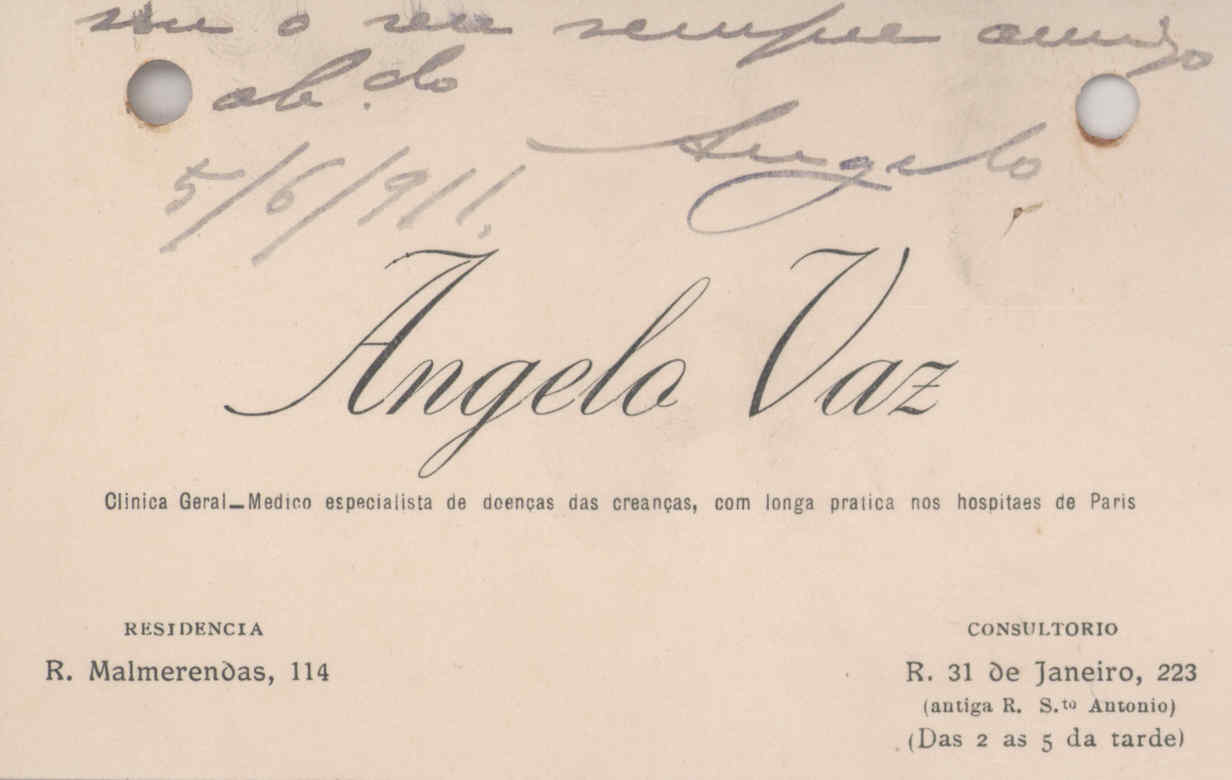 sou o seu sempre amigo
ob.do
Angelo
5/6/911.
Angelo Vaz
Clinica Geral—Medico especialista de doenças das creanças, com longa pratica nos hospitaes de Paris
RESIDENCIA
R. Malmerendas, 114
CONSULTORIO
R. 31 de Janeiro, 223
(antiga R. S.to Antonio)
(Das 2 as 5 da tarde)